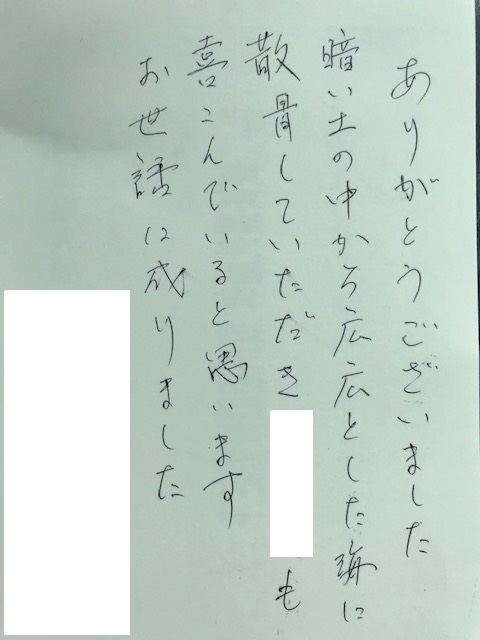 ありがとうございました
暗い土の中から広広とした海に
散骨していただき も
喜こんでいると思います
お世話に成りました